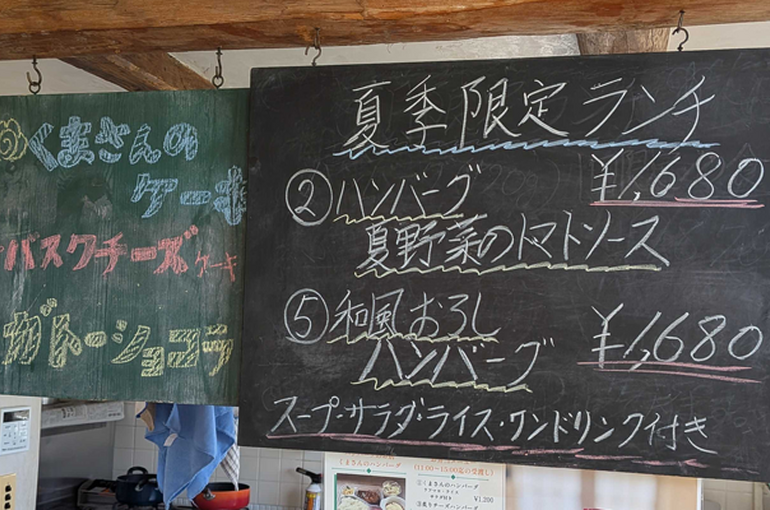 くまさんの
ケーキ
バスクチーズケーキ
ガトーショコラ
夏季限定ランチ
②ハンバーグ ¥1,680
夏野菜のトマトソース
⑤和風おろし
ハンバーグ ¥1,680
スープ・サラダ・ライス・ワンドリンク付き
くまさんのハンバーグ
(11:00~15:00迄の受渡し)
①くまさんのハンバーグ
¥1,200